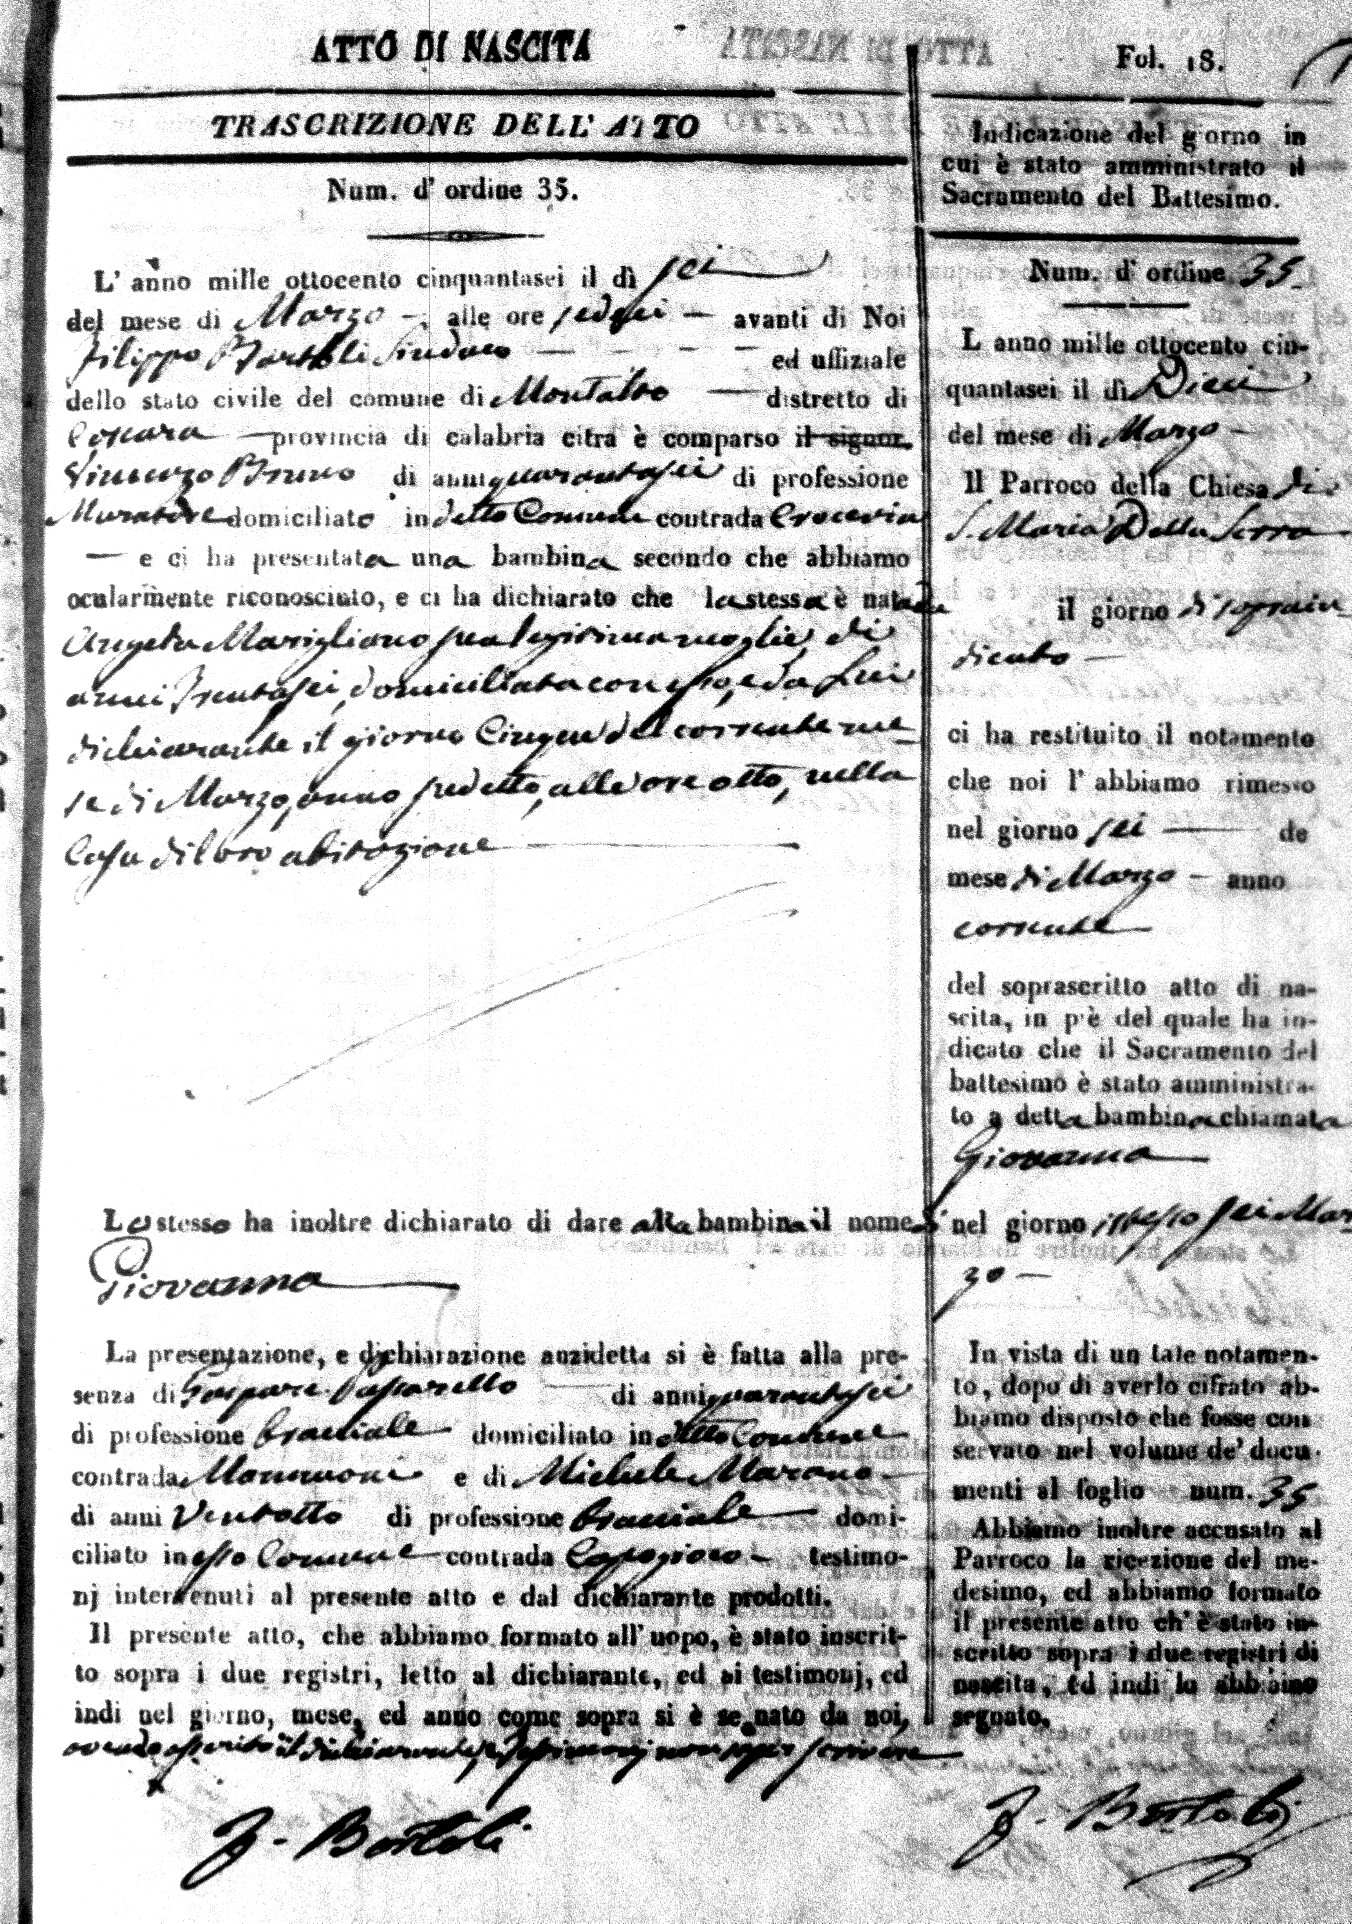 ATTO DI NASCITA
TRASCRIZIONE DELL' ATTO
Num. d' ordine 35.
L' anno mille ottocento cinquantasei il dì sei
del mese di Marzo alle ore sedici avanti di Noi
Filippo Bartoli Sindaco ed uffiziale
dello stato civile del comune di Montalto distretto di
Cosenza provincia di calabria citra è comparso il signor.
Vincenzo Bruno di anni quarantasei di professione
Muratore domiciliato in detto Comune contrada Crocevia
e ci ha presentata una bambina secondo che abbiamo
ocularmente riconosciuto, e ci ha dichiarato che la stessa è nata da
Angela Marigliano sua legittima moglie, di
anni trentasei, domiciliata con esso, e da lui
dichiarante il giorno Cinque del corrente me=
se di Marzo, anno sudetto, alle ore otto, nella
Casa di loro abitazione
Lo stesso ha inoltre dichiarato di dare alla bambina il nome di
Giovanna
La presentazione, e dichiarazione anzidetta si è fatta alla pre-
senza di Gaspare Passarello di anni quarantasei
di professione bracciale domiciliato in detto Comune
contrada e di Michele Marano
di anni Ventotto di professione bracciale domi-
ciliato in esso Comune contrada testimo-
nj intervenuti al presente atto e dal dichiarante prodotti.
Il presente atto, che abbiamo formato all' uopo, è stato inscrit-
to sopra i due registri, letto al dichiarante, ed ai testimonj, ed
indi nel giorno, mese, ed anno come sopra si è segnato da noi,
avendo asserito il dichiarante, e testimonj non saper scrivere
F. Bartoli
Fol. 18.
Indicazione del giorno in
cui è stato amministrato il
Sacramento del Battesimo.
Num. d' ordine 35.
L anno mille ottocento cin-
quantasei il dì Dieci
del mese di Marzo
Il Parroco della Chiesa di
S. Maria Della Serra
il giorno di sopra in=
dicato
ci ha restituito il notamento
che noi l' abbiamo rimesso
nel giorno sei de
mese di Marzo anno
corrente
del soprascritto atto di na-
scita, in piè del quale ha in-
dicato che il Sacramento del
battesimo è stato amministra-
to a detta bambina chiamata
Giovanna
nel giorno istesso sei Mar=
zo
In vista di un tale notamen-
to, dopo di averlo cifrato ab-
biamo disposto che fosse con
servato nel volume de' docu-
menti al foglio num. 35
Abbiamo inoltre accusato al
Parroco la ricezione del me-
desimo, ed abbiamo formato
il presente atto ch' è stato in-
scritto sopra i due registri di
nascita, ed indi lo abbiamo
segnato.
F. Bartoli